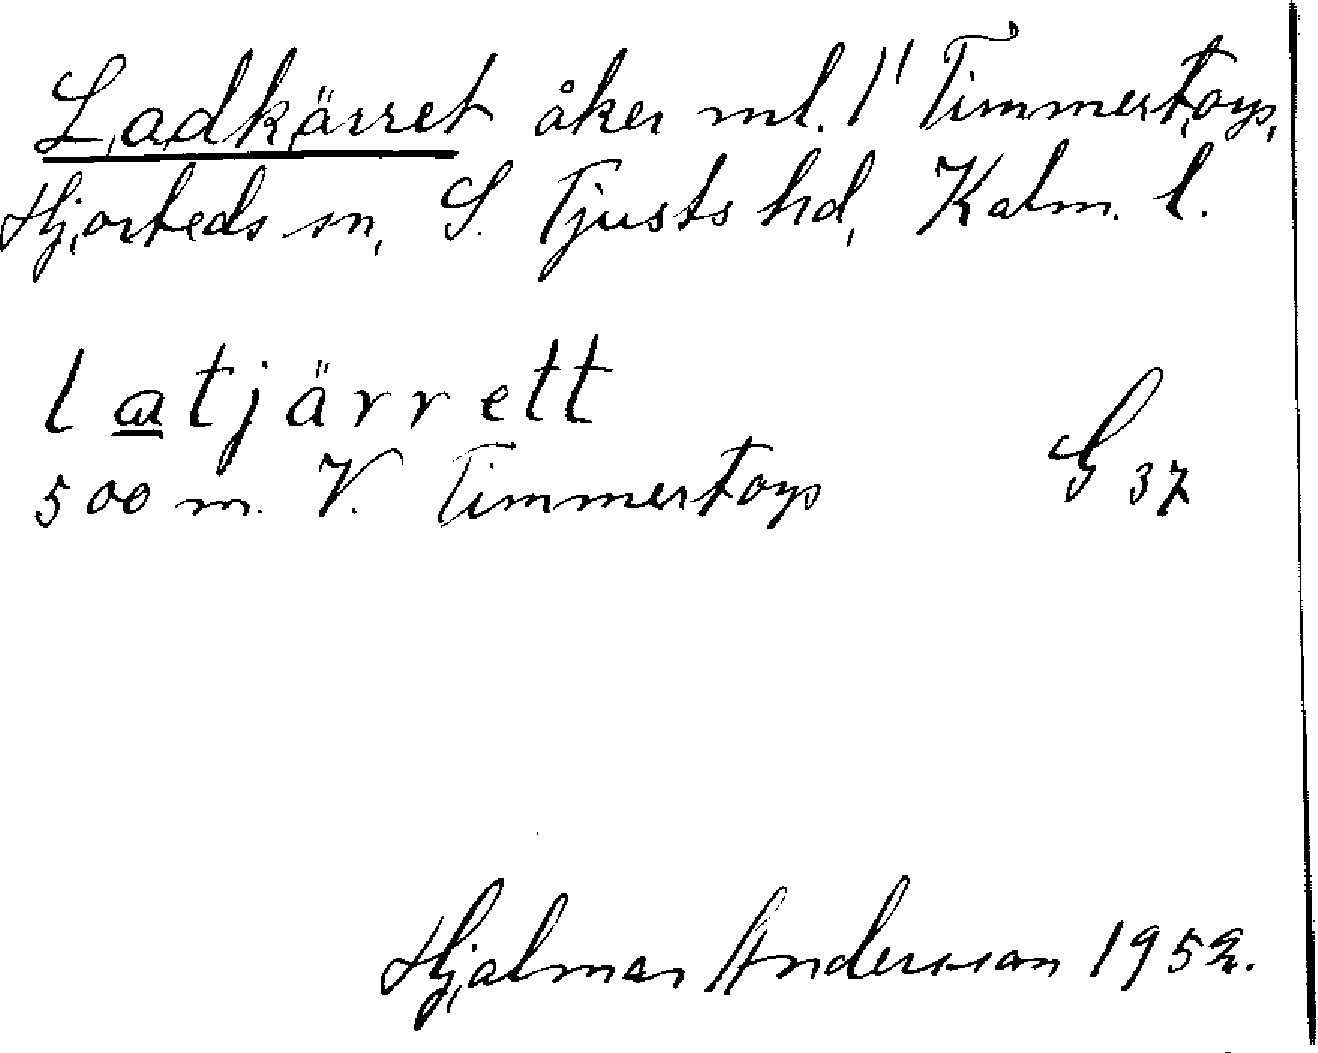 Ladkärret åker ml. 1" Timmertorp,
Hjorteds sn, S. Tjusts hd, Kalm. l.
latjärrett
500 m. V. Timmertorp G 37
Hjalmar Andersson 1952.